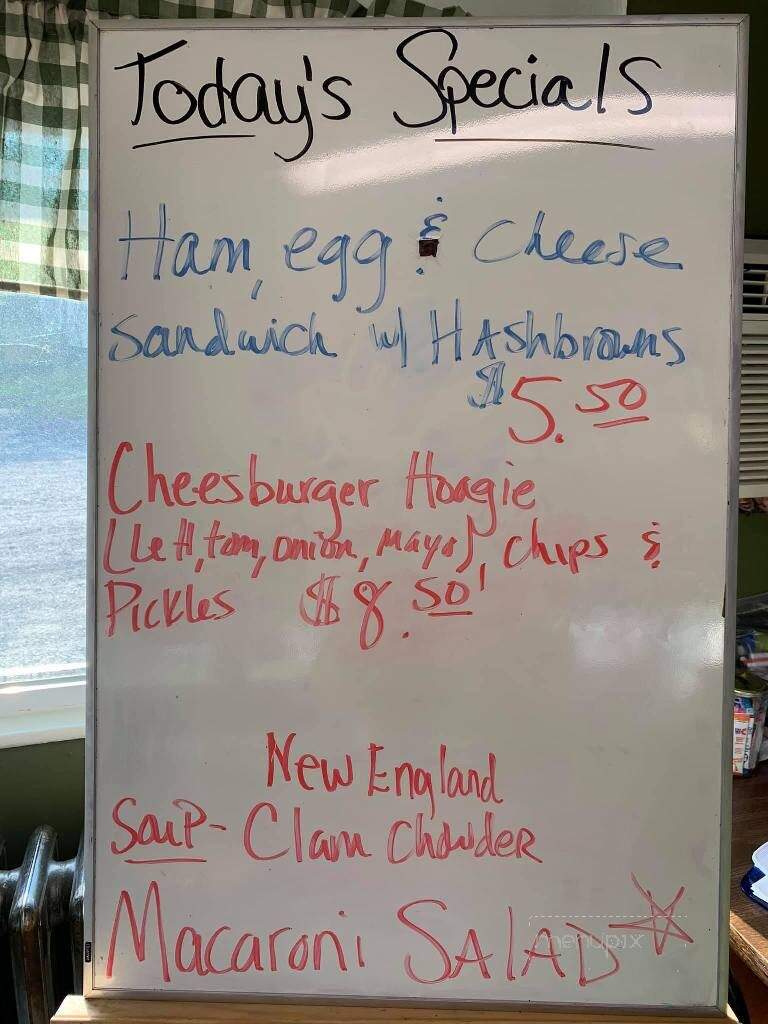 Today's Specials
Ham, egg & Cheese
Sandwich w/ Hashbrowns
$5.50
Cheesburger Hoagie
(Lett, tom, onion, mayo), chips &
Pickles $8.50
New England
Soup- Clam Chowder
Macaroni SALAD
menupix